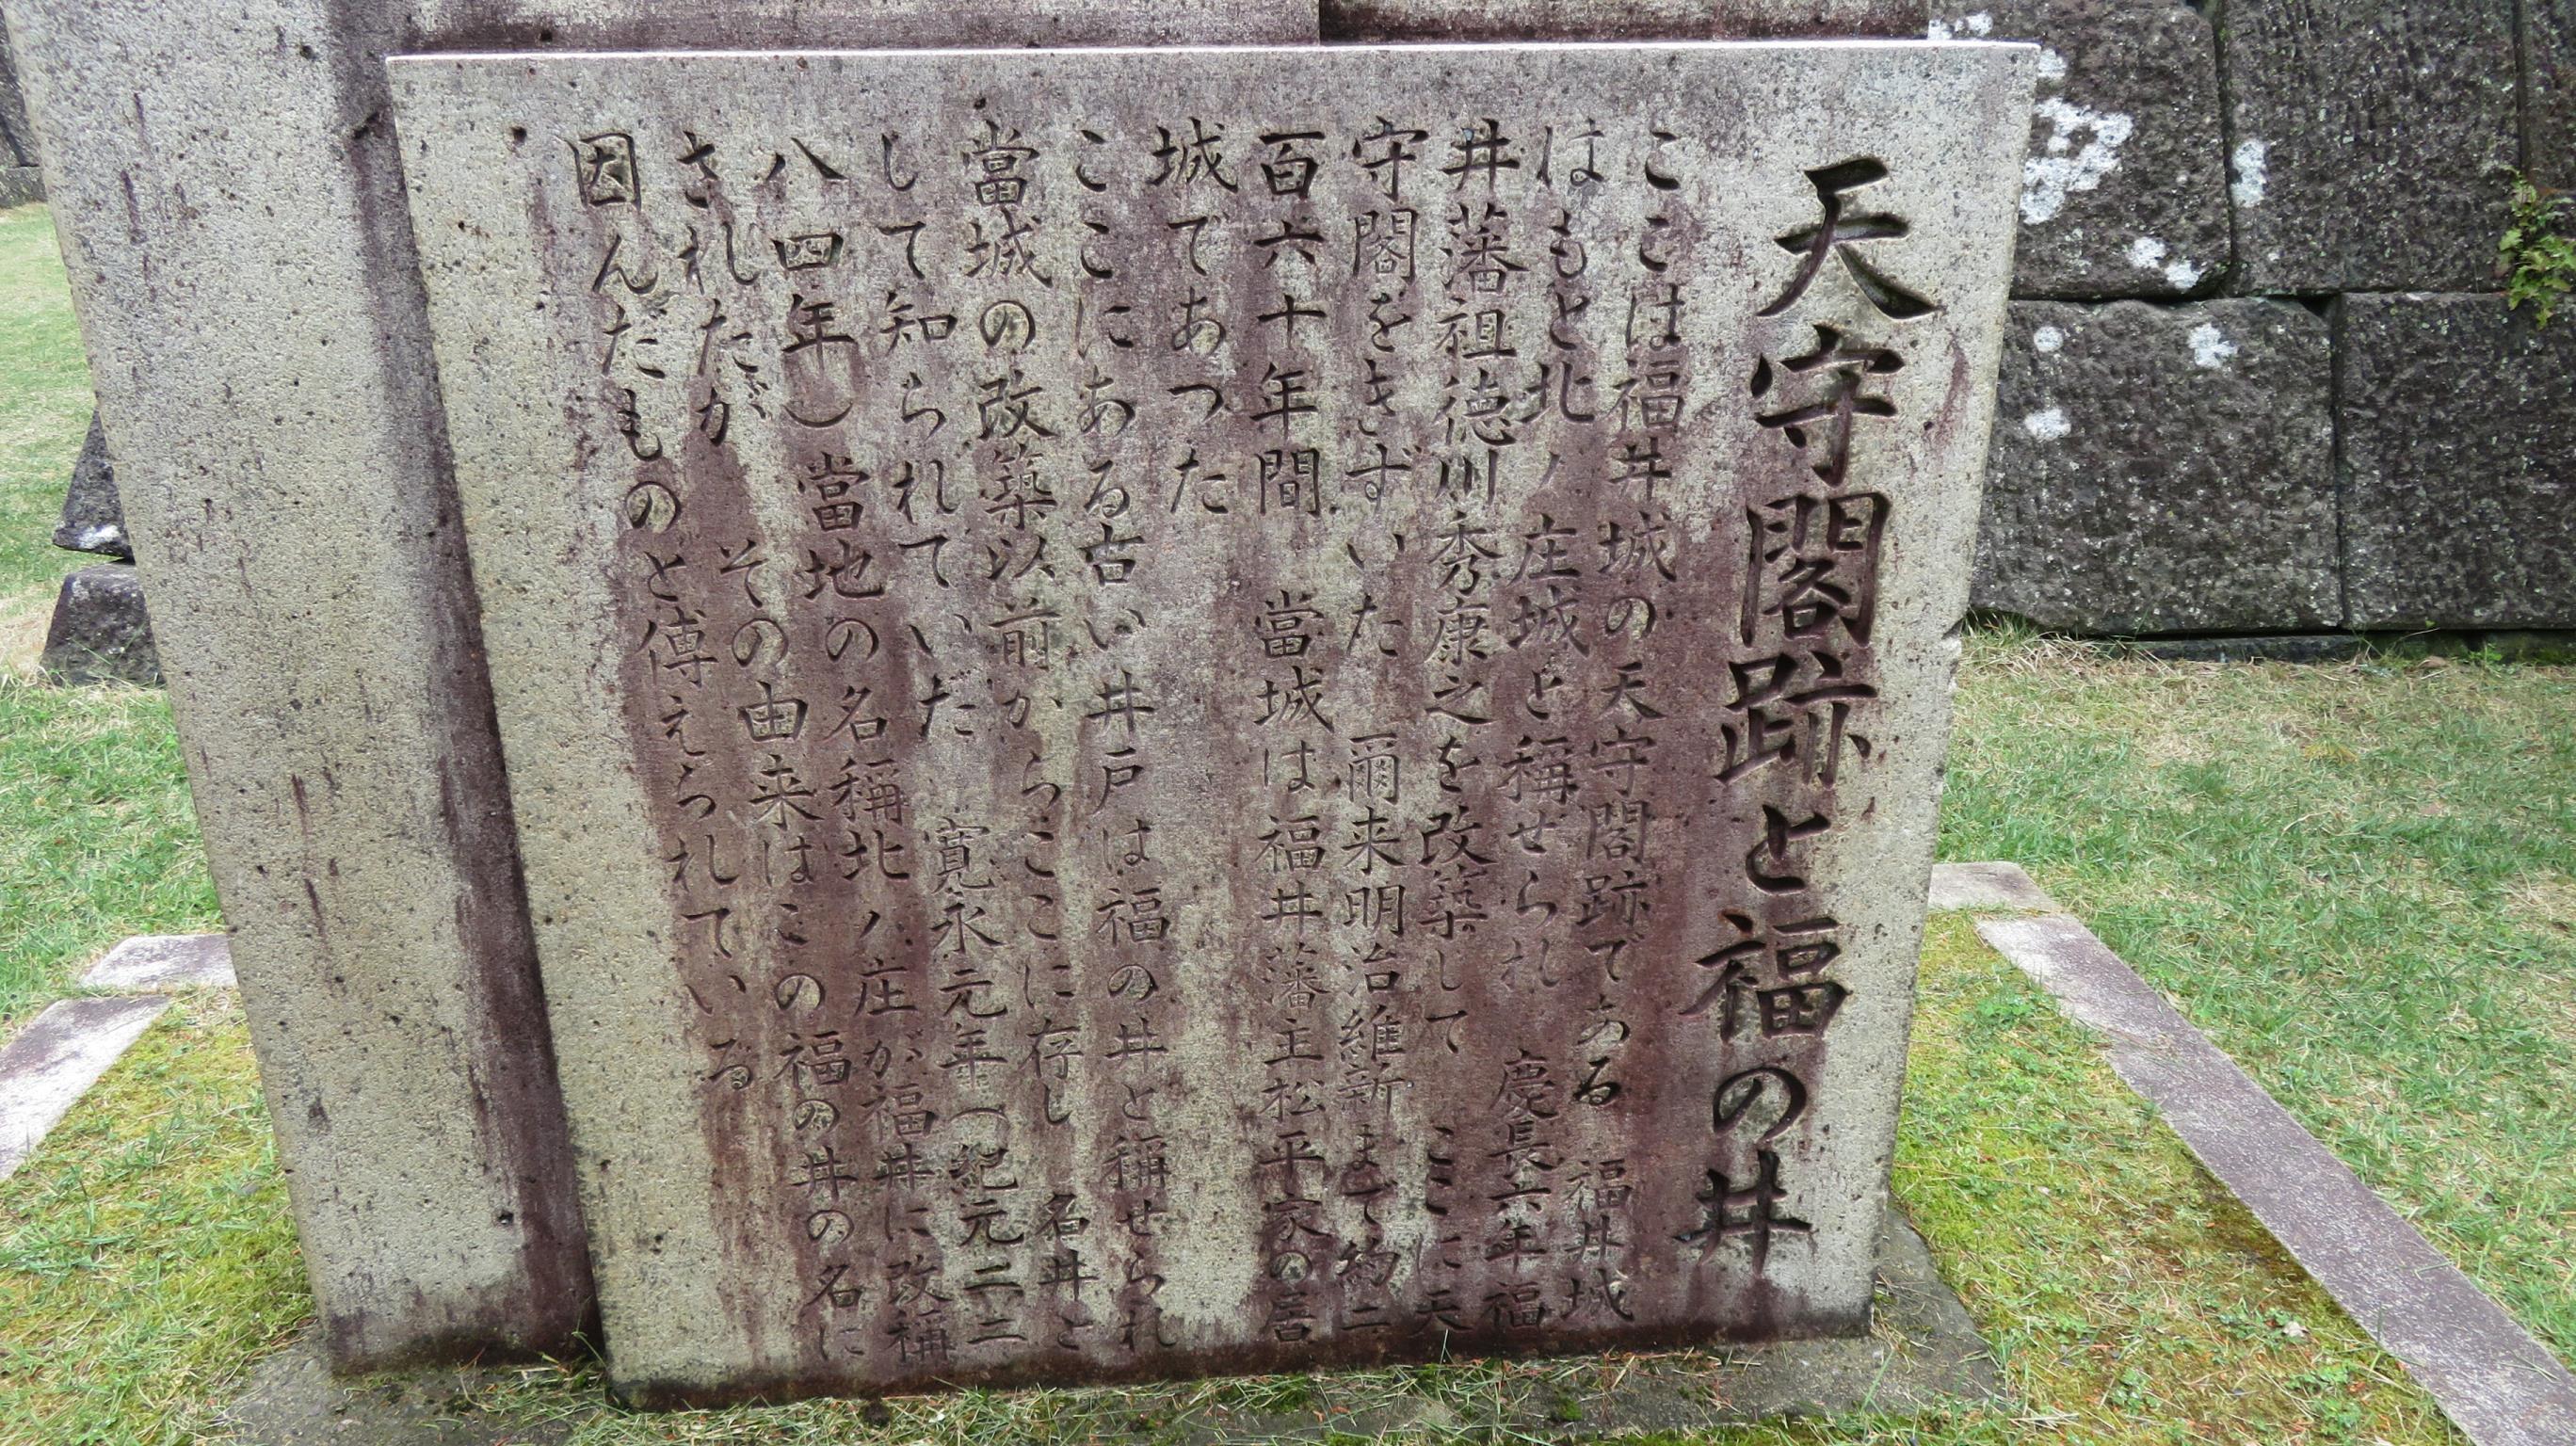 天守閣跡と福の井
ここは福井城の天守閣跡である　福井城
はもと北ノ庄城と稱せられ　慶長六年福
井藩祖徳川秀康之を改築して　ここに天
守閣をきずいた　爾来明治維新まで約二
百六十年間　當城は福井藩主松平家の居
城であつた
ここにある古い井戸は福の井と稱せられ
當城の改築以前からここに存し　名井と
して知られていた　寛永元年（紀元二二
八四年）當地の名稱北ノ庄が福井に改稱
されたが　その由来はこの福の井の名に
因んだものと傳えられている